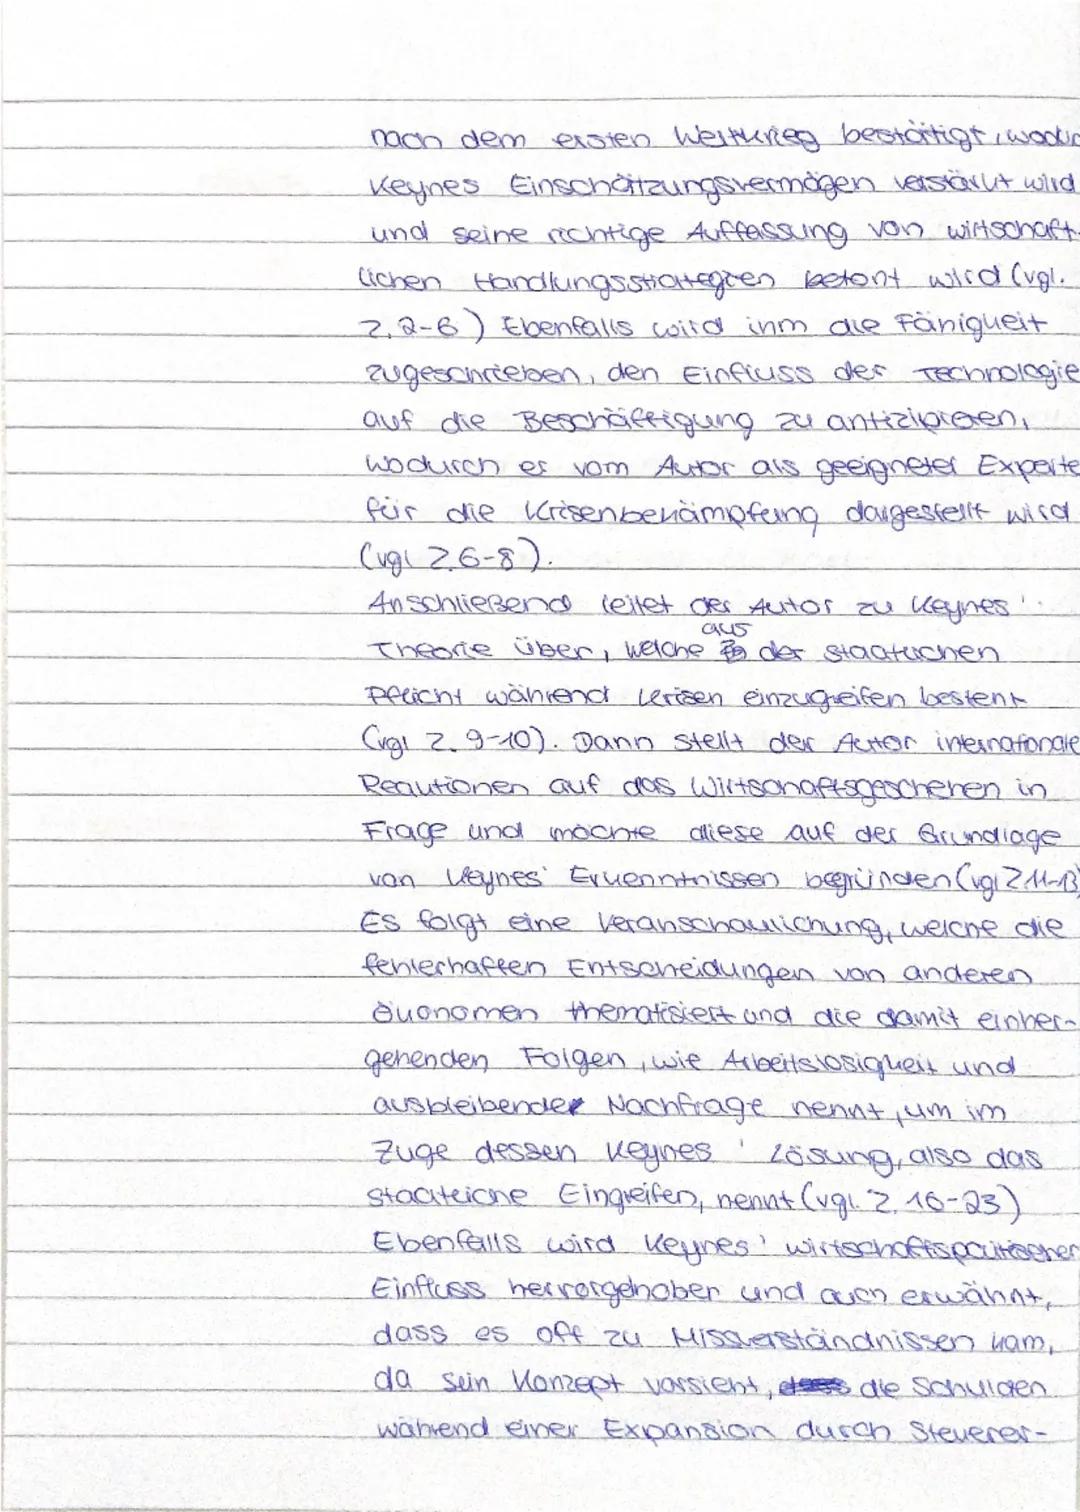 nach dem ersten Weltkrieg bestätigt, wodur
Keynes Einschätzungsvermögen verstärkt wird
und seine richtige Auffassung von wirtschaft-
lichen Handlungsstrategien betont wird (vgl.
Z. 2-6) Ebenfalls wird ihm die Fähigkeit
zugeschrieben, den Einfluss der Technologie
auf die Beschäftigung zu antizipieren,
wodurch er vom Autor als geeigneter Experte
für die Krisenbekämpfung dargestellt wird
(vgl Z. 6-8).
Anschließend leitet der Autor zu Keynes'
Theorie über, welche aus der staatlichen
Pflicht während Krisen einzugreifen besteht
(vgl Z. 9-10). Dann stellt der Autor internationale
Reaktionen auf das Wirtschaftsgeschehen in
Frage und möchte diese auf der Grundlage
von Keynes' Erkenntnissen begründen (vgl Z 11-13)
Es folgt eine Veranschaulichung, welche die
fehlerhaften Entscheidungen von anderen
Ökonomen thematisiert und die damit einher-
gehenden Folgen, wie Arbeitslosigkeit und
ausbleibende Nachfrage nennt, um im
Zuge dessen Keynes' Lösung, also das
staatliche Eingreifen, nennt (vgl. Z. 16-23)
Ebenfalls wird Keynes' wirtschaftspolitischer
Einfluss hervorgehoben und auch erwähnt,
dass es oft zu Missverständnissen kam,
da sein Konzept vorsieht, die Schulden
während einer Expansion durch Steuerer-